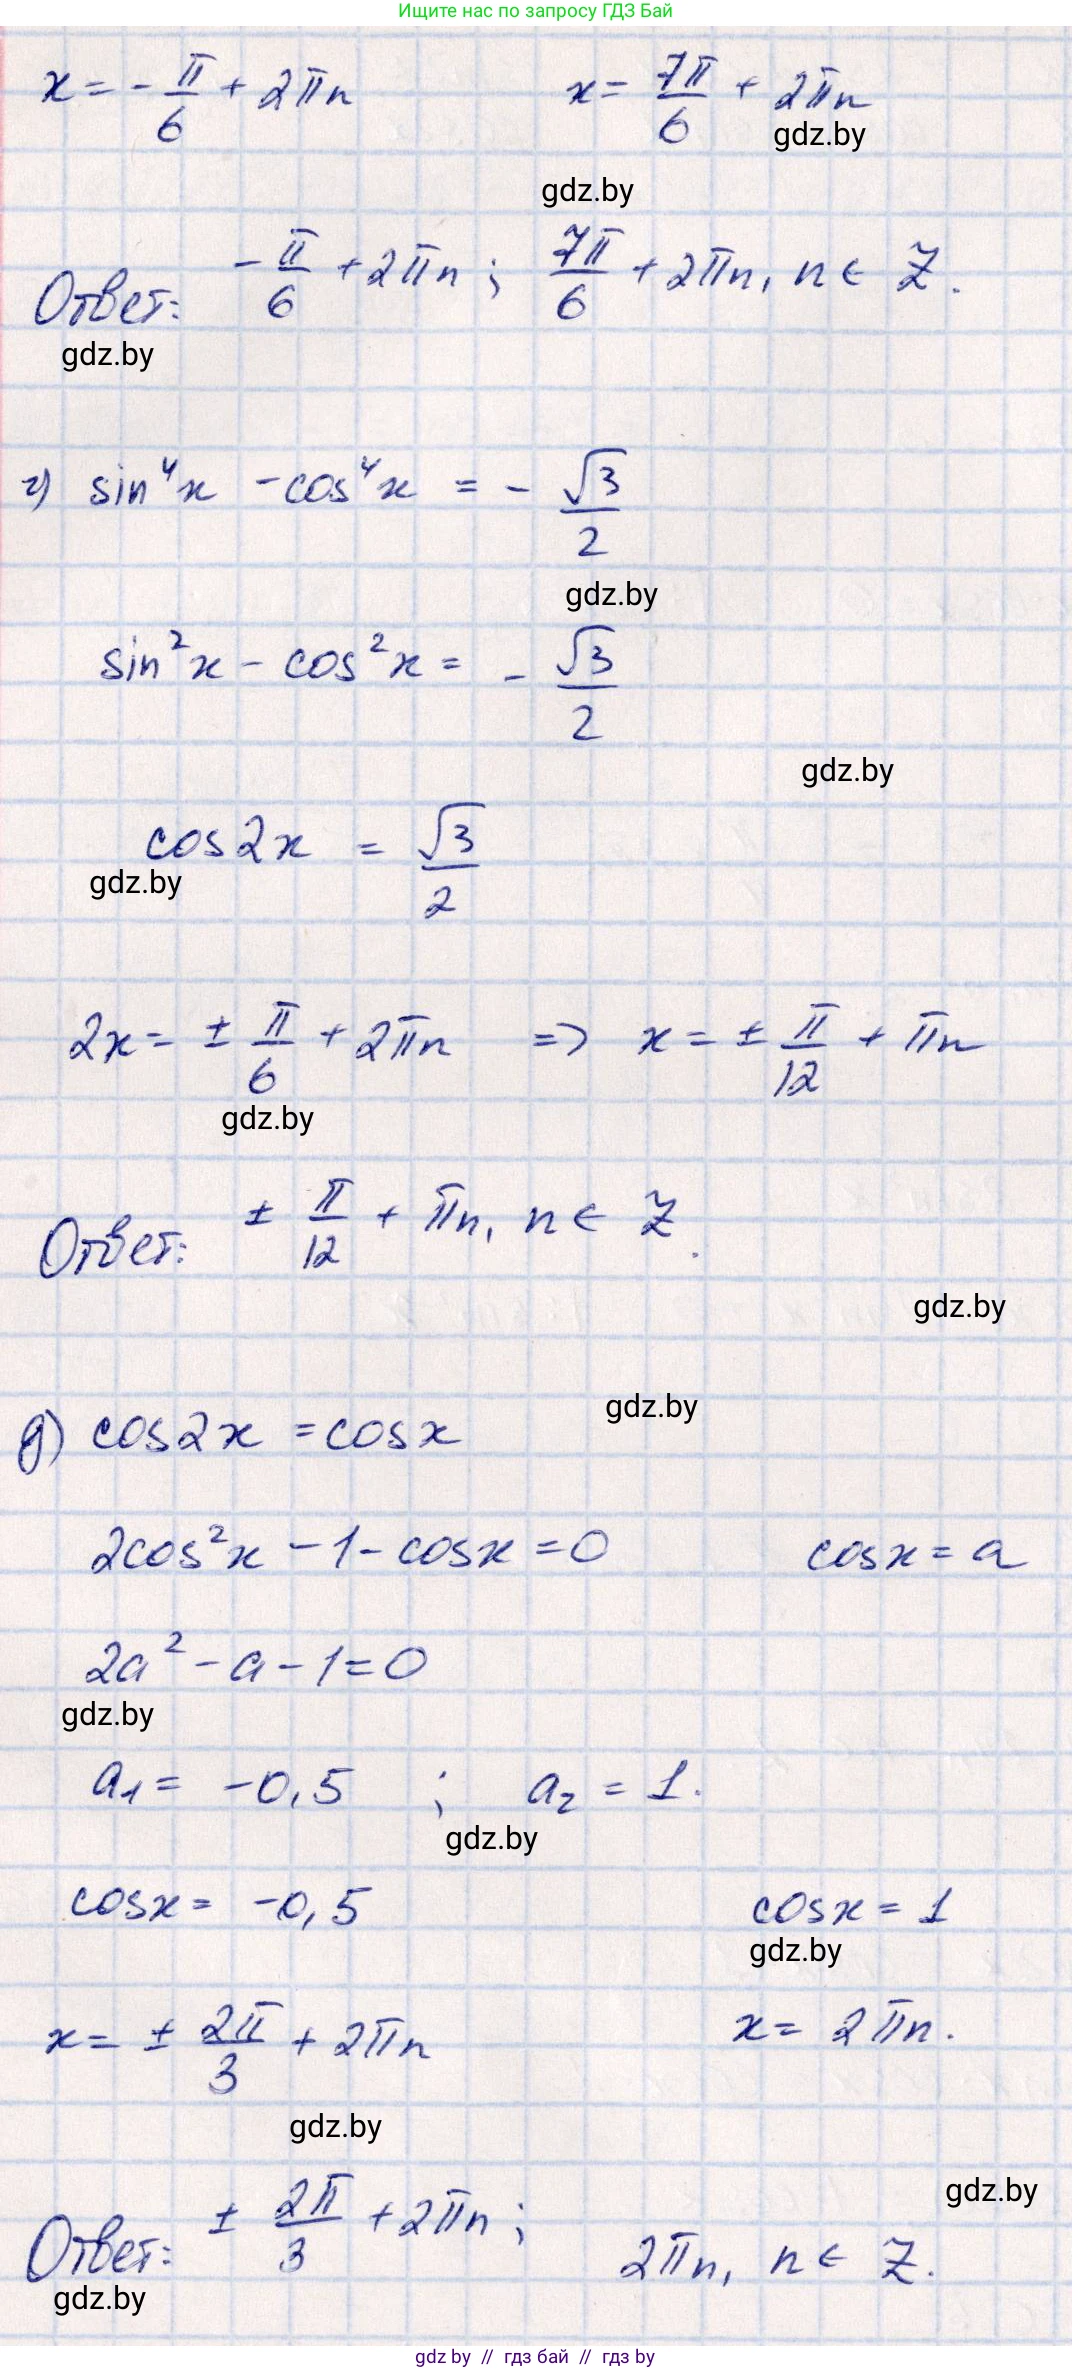 Ищите нас по запросу ГДЗ Бай
x = -π/6 + 2πn    x = 7π/6 + 2πn
gdz.by
gdz.by
Ответ: -π/6 + 2πn; 7π/6 + 2πn, n ∈ Z.
gdz.by
г) sin⁴x - cos⁴x = -√3/2
gdz.by
sin²x - cos²x = -√3/2
gdz.by
cos2x = √3/2
gdz.by
2x = ±π/6 + 2πn => x = ±π/12 + πn
gdz.by
Ответ: ±π/12 + πn, n ∈ Z.
gdz.by
gdz.by
д) cos2x = cosx
2cos²x - 1 - cosx = 0    cosx = a
2a² - a - 1 = 0
gdz.by
a₁ = -0,5 ; a₂ = 1.
gdz.by
cosx = -0,5    cosx = 1
gdz.by
x = ±2π/3 + 2πn    x = 2πn.
gdz.by
gdz.by
Ответ: ±2π/3 + 2πn; 2πn, n ∈ Z.
gdz.by
gdz by // гдз бай // гдз by